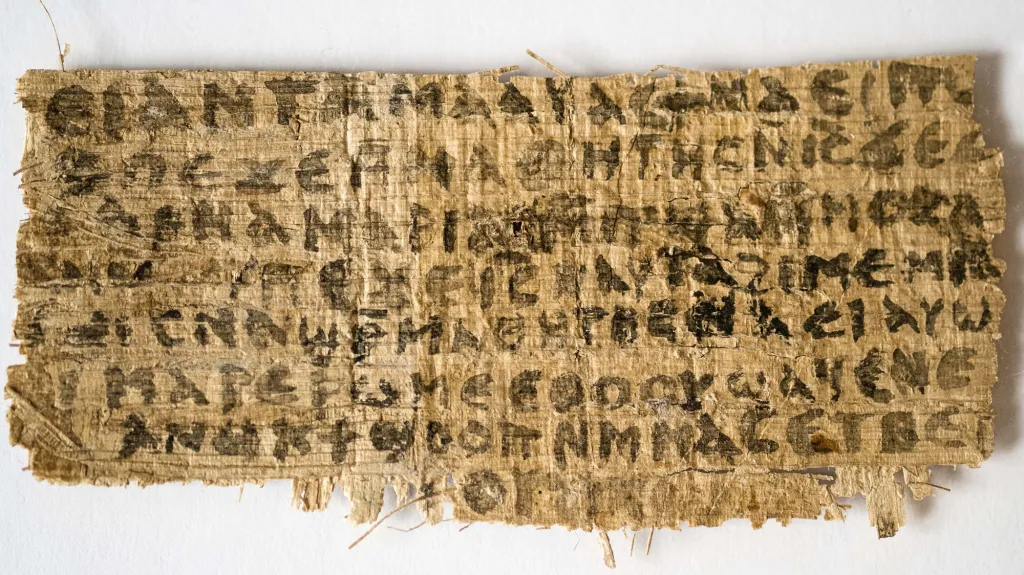 ⲉⲓ ⲁⲛ ⲧⲁⲙⲁⲁⲩ ⲁⲥϯ ⲛⲁⲉⲓ ⲡⲱ
ⲡⲉϫⲉ ⲙⲙⲁⲑⲏⲧⲏⲥ ⲛⲓ̅ⲥ̅ ϫⲉ ⲥ
ⲁⲣⲛⲁ ⲙⲁⲣⲓⲁⲙ ⲙⲡϣⲁ ⲙⲙⲟⲥ ⲁ
ⲡⲉϫⲉ ⲓ̅ⲥ̅ ⲛⲁⲩ ⲧⲁϩⲓⲙⲉ ⲙⲛ
ⲥⲛⲁϣⲣⲙⲁⲑⲏⲧⲏⲥ ⲛⲁⲉⲓ ⲁⲩⲱ
ⲙⲁⲣⲉⲣⲱⲙⲉ ⲉⲑⲟⲟⲩ ϣⲁϥⲉ ⲛⲉ
ⲁⲛⲟⲕ ϯϣⲟⲟⲡ ⲛⲙⲙⲁⲥ ⲉⲧⲃⲉ ⲡ